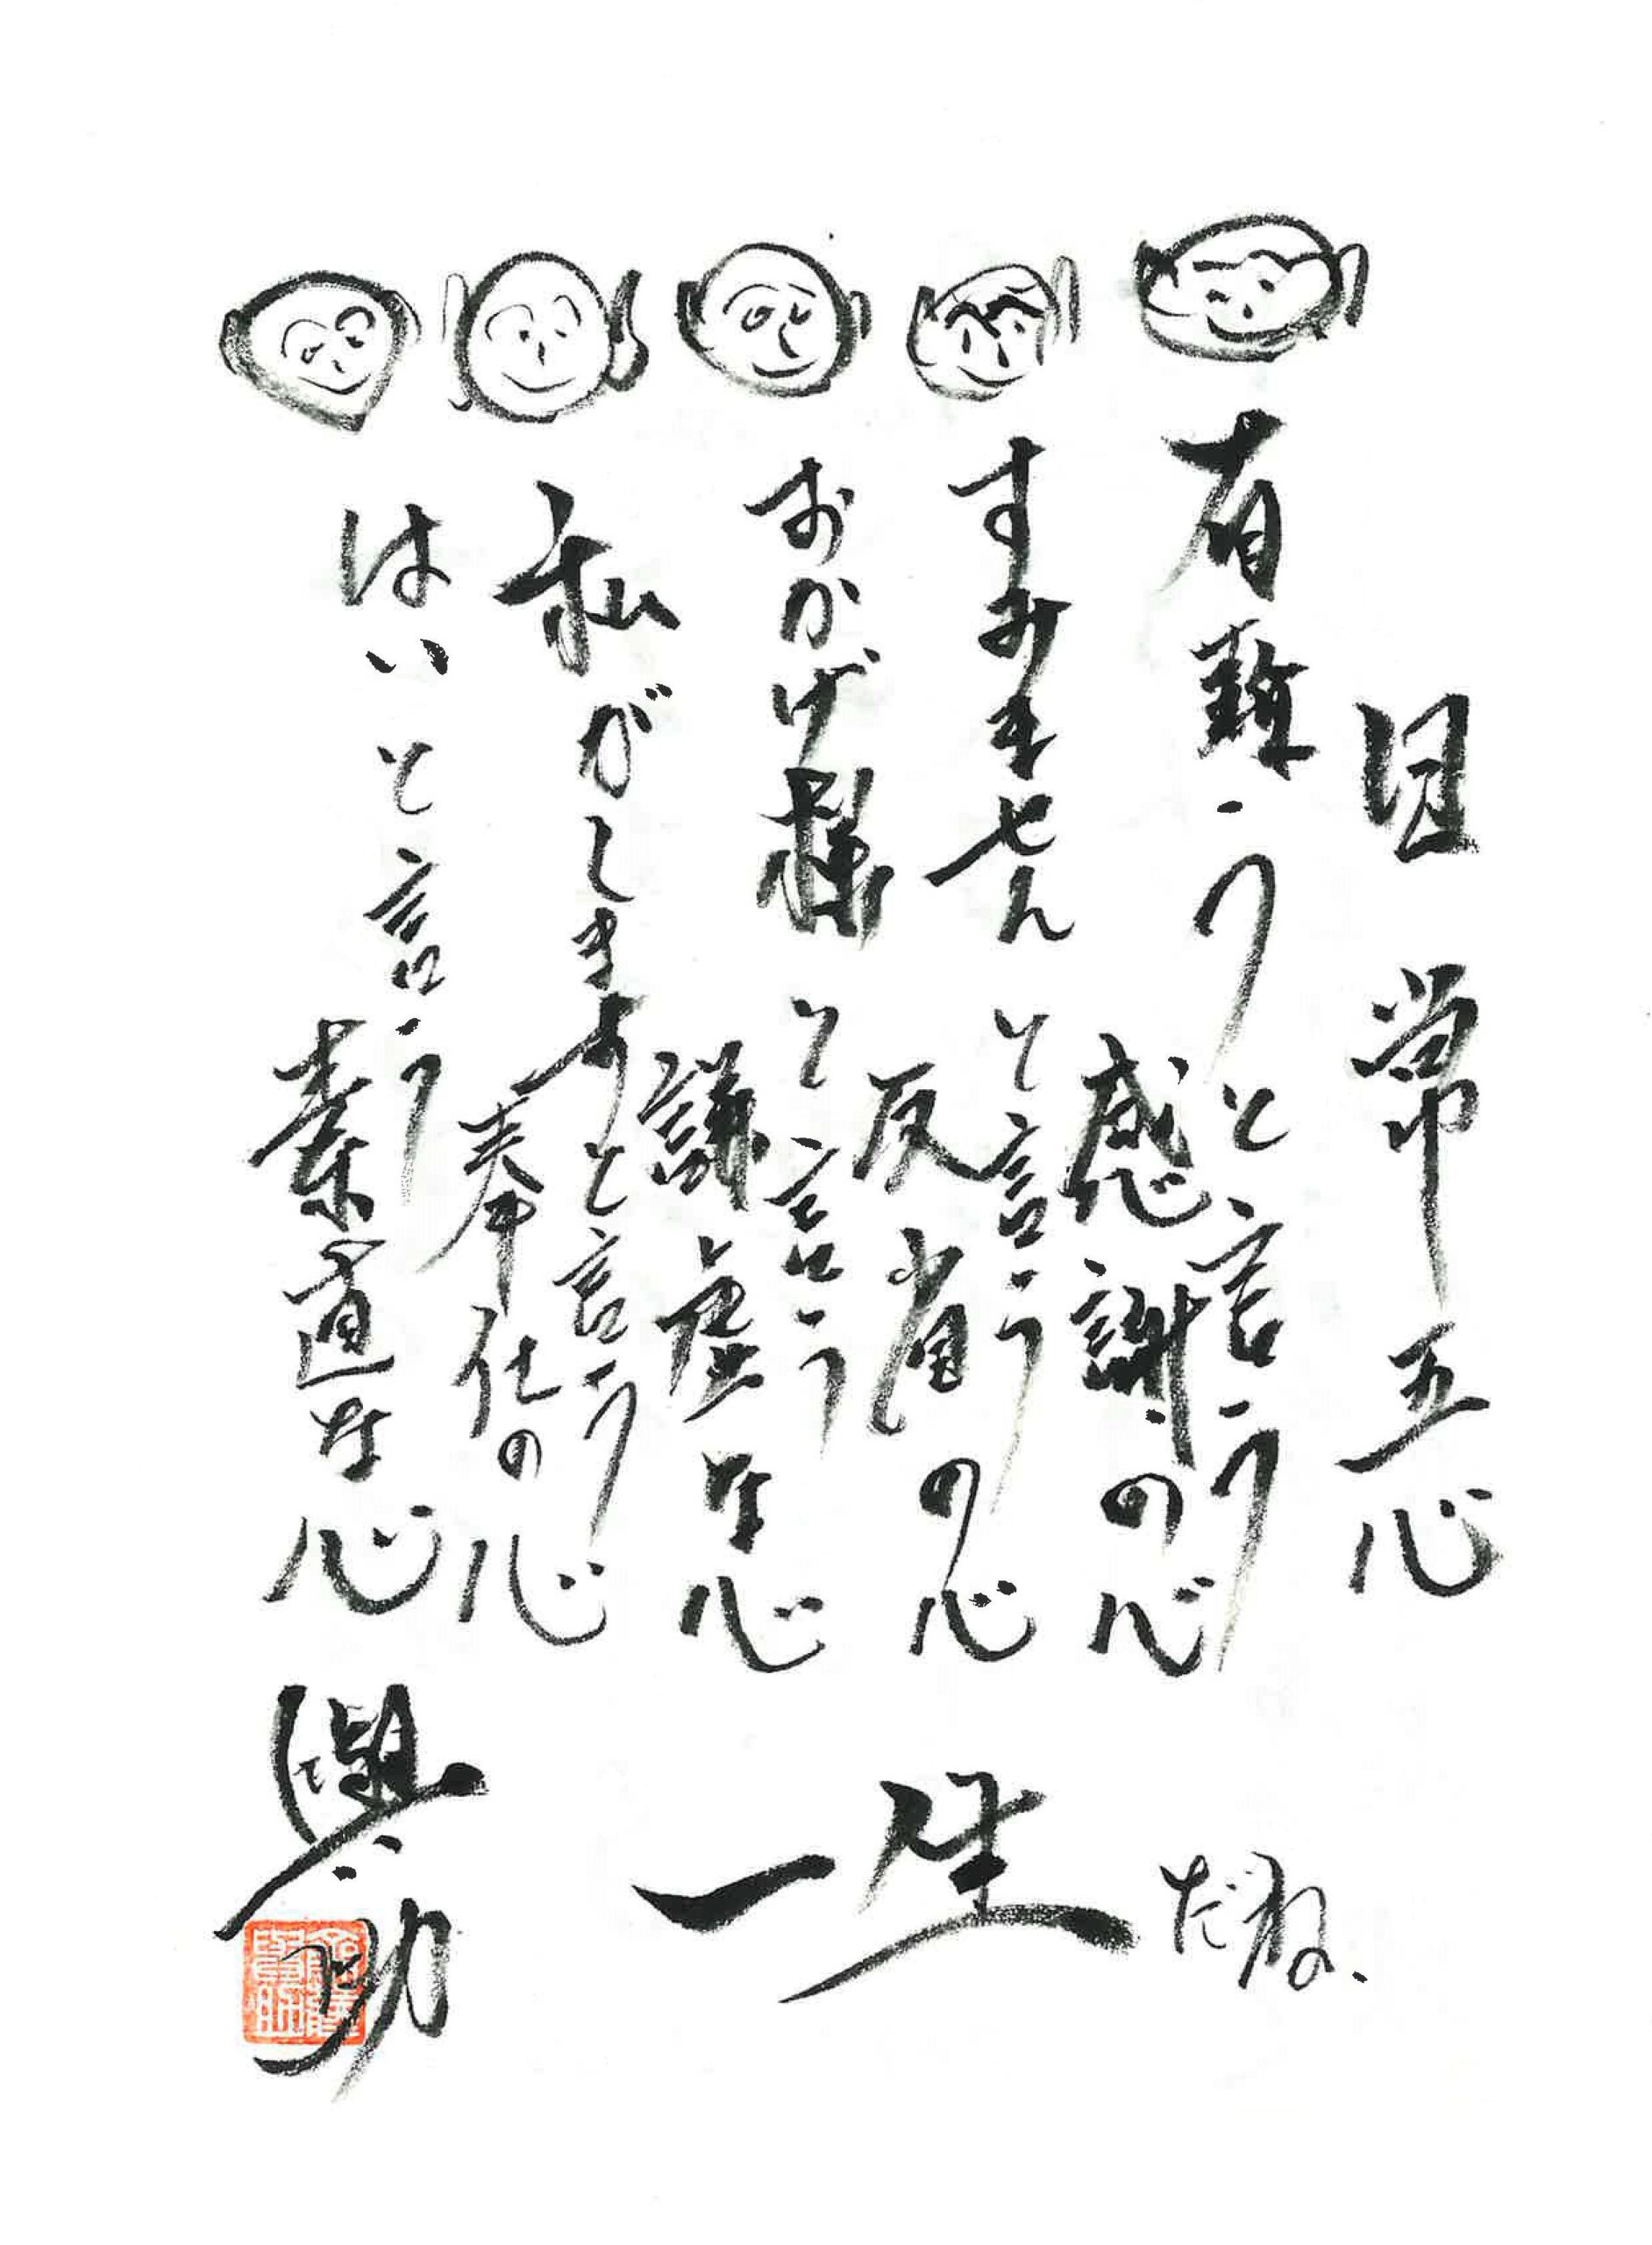 日常五心
有難うと言う
感謝の心
すみませんと言う
反省の心
おかげ様と言う
謙虚な心
私がしますと言う
奉仕の心
はいと言う
素直な心
だね、
一生